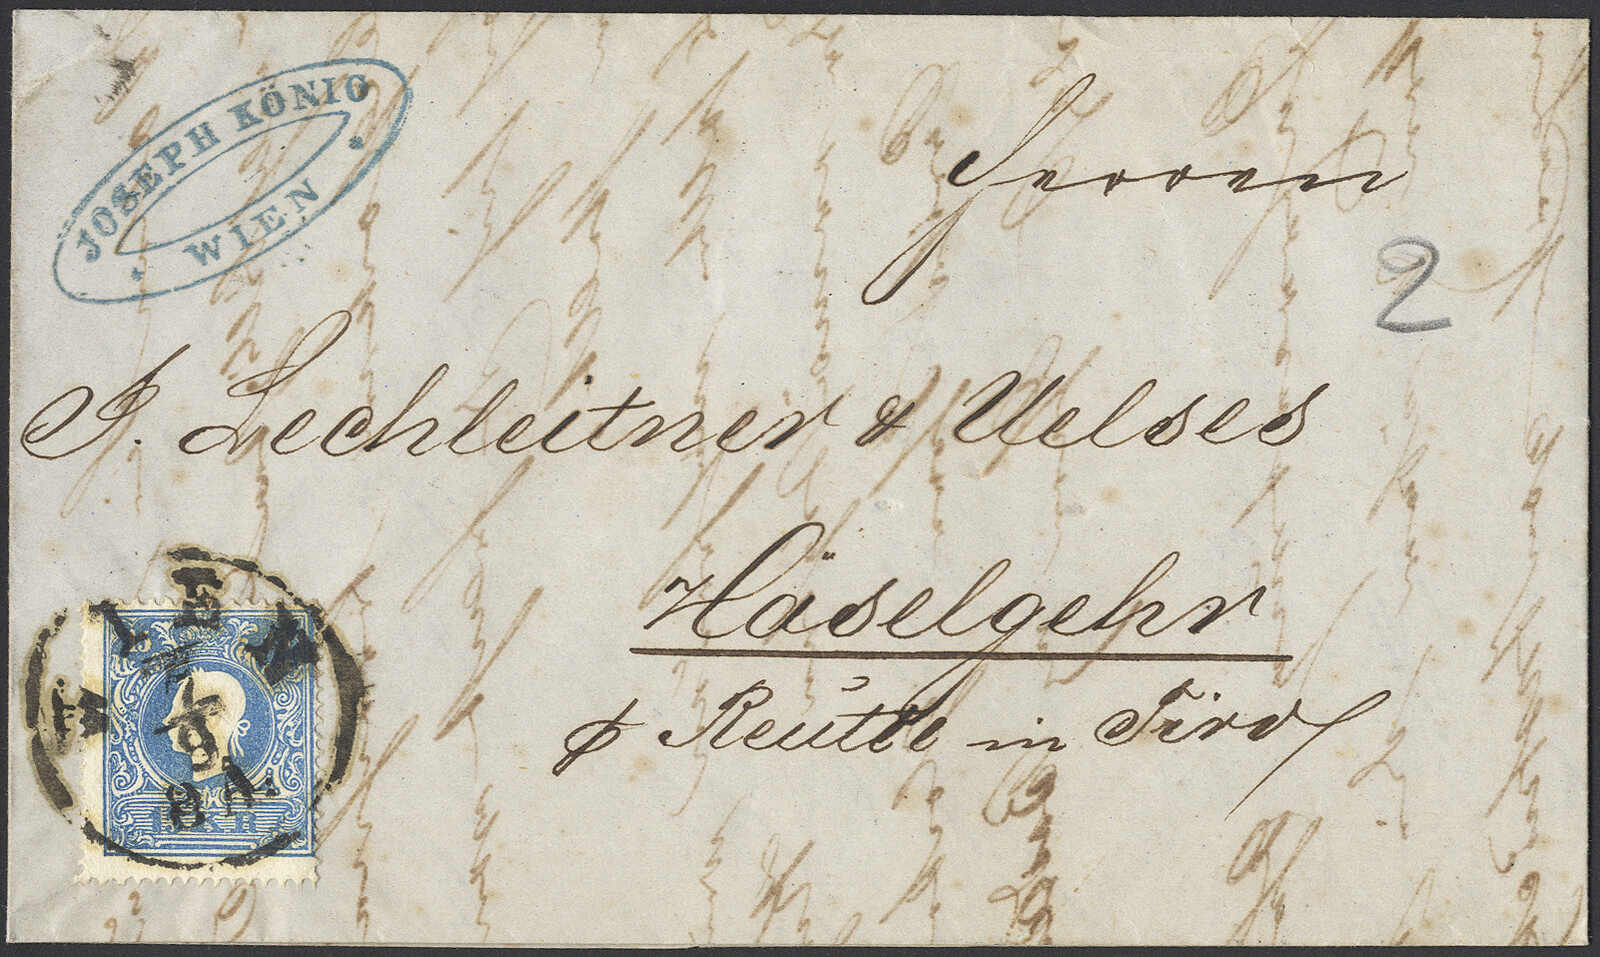 JOSEPH KÖNIG
WIEN
Herren
2
J. Lechleitner & Uelses
Häselgehr
p Reutte in Tirol
WIEN
1/9
8 A.
15 KR